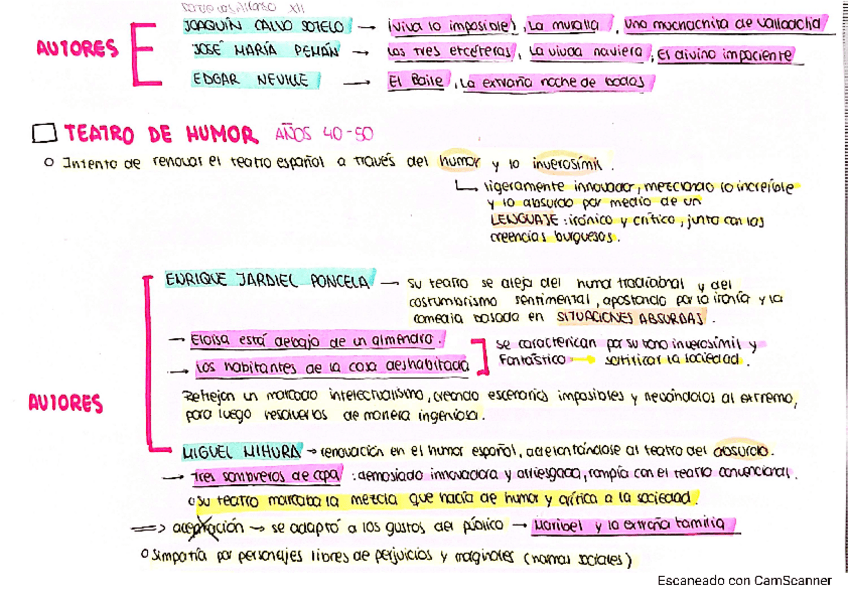 JOAQUÍN CALVO SOTELO → ¡Viva lo imposible!, La muralla, Una muchachita de Valladolid
AUTORES
JOSÉ MARÍA PEMÁN → Los tres etcéteras, La viuda naviera, El divino impaciente
EDGAR NEVILLE → El Baile, La extraña noche de bodas
TEATRO DE HUMOR AÑOS 40-50
o Intento de renovar el teatro español a través del humor y lo inverosímil.
ligeramente innovador, mezclando lo increíble
y lo absurdo por medio de un
LENGUAJE: irónico y crítico, junto con las
creencias burguesas.
ENRIQUE JARDIEL PONCELA → Su teatro se aleja del humor tradicional y del
costumbrismo sentimental, apostando por la ironía y la
comedia basada en SITUACIONES ABSURDAS.
→ Eloísa está debajo de un almendro.
se caracterizan por su tono inverosímil y
→ Los habitantes de la casa deshabitada
fantástico → satirizar la sociedad.
AUTORES
Reflejan un marcado intelectualismo, creando escenarios imposibles y llevándolos al extremo,
para luego resolverlos de manera ingeniosa.
MIGUEL MIHURA → renovación en el humor español, adelantándose al teatro del absurdo.
→ Tres sombreros de copa: demasiado innovadora y arriesgada, rompía con el teatro convencional.
o Su teatro marcaba la mezcla que hacía de humor y crítica a la sociedad.
⇒ aceptación → se adaptó a los gustos del público → Maribel y la extraña familia
o Simpatía por personajes libres de perjuicios y marginales (normas sociales)
Escaneado con CamScanner